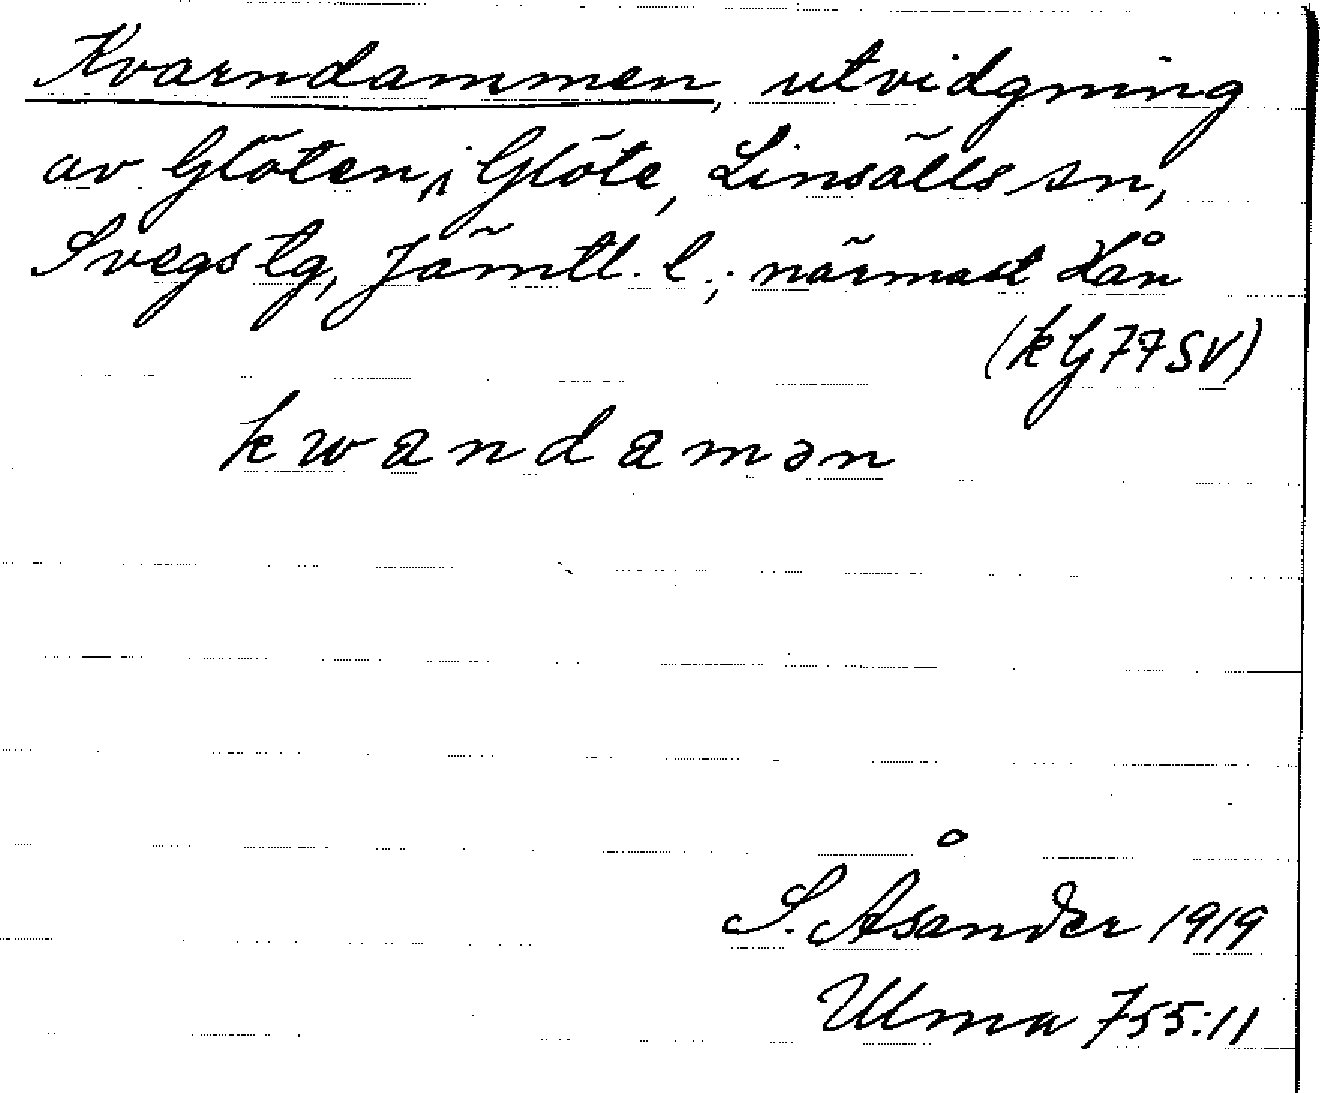 Kvarndammen, utvidgning
av Glöten, i Glöte, Linsälls sn,
Svegs tg, Jämtl. l.; närmast Hån
(kG 77 SV)
kwandamən
S. Åsander 1919
Ulma 755:11